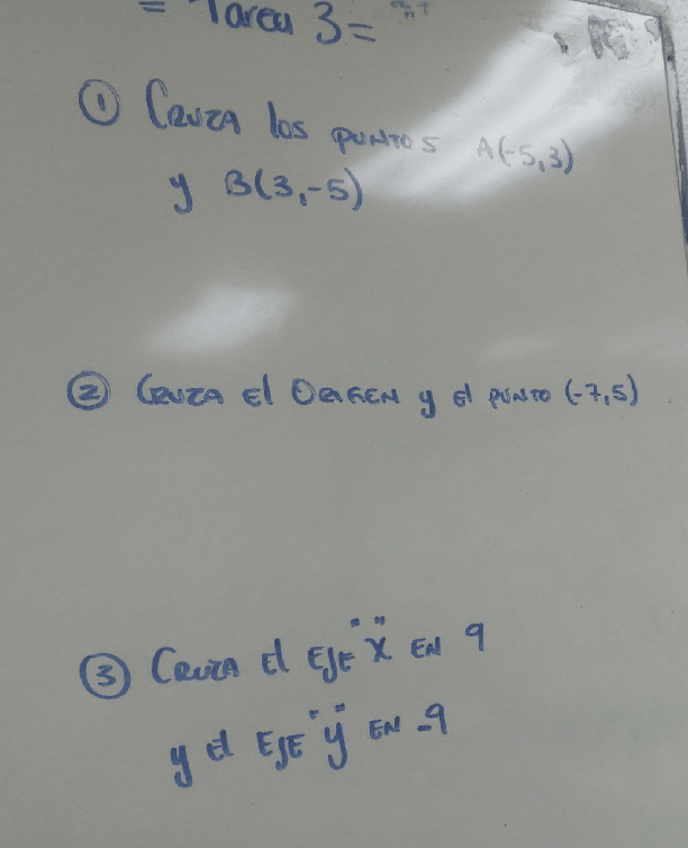 = Tarea 3=
① CRUZA los PUNTOS A(-5,3)
y B(3,-5)
② CRUZA El ORIGEN y el PUNTO (-7,5)
③ CRUZA El EJE "X" EN 9
y el EJE "y" EN -9